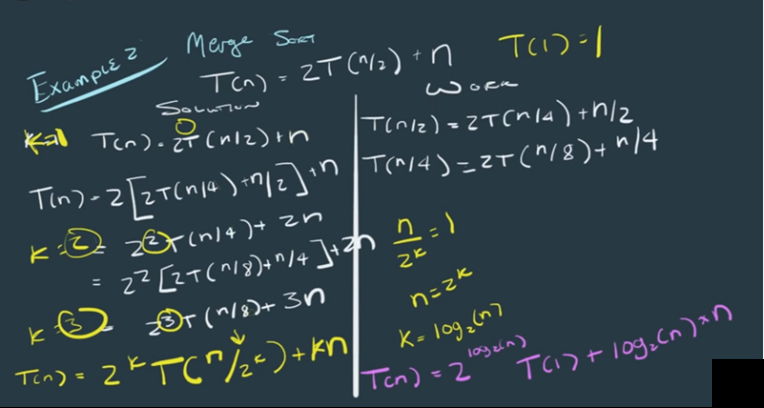 Example 2
Merge Sort
T(n) = 2T(n/2) + n
T(1) = 1
Solution
k=1 T(n) = 2T(n/2) + n
T(n) = 2[2T(n/4) + n/2] + n
k=2 = 2²T(n/4) + 2n
= 2²[2T(n/8) + n/4] + 2n
k=3 = 2³T(n/8) + 3n
T(n) = 2ᵏT(n/2ᵏ) + kn
Work
T(n/2) = 2T(n/4) + n/2
T(n/4) = 2T(n/8) + n/4
n/2ᵏ = 1
n = 2ᵏ
k = log₂(n)
T(n) = 2^log₂(n) T(1) + log₂(n) * n